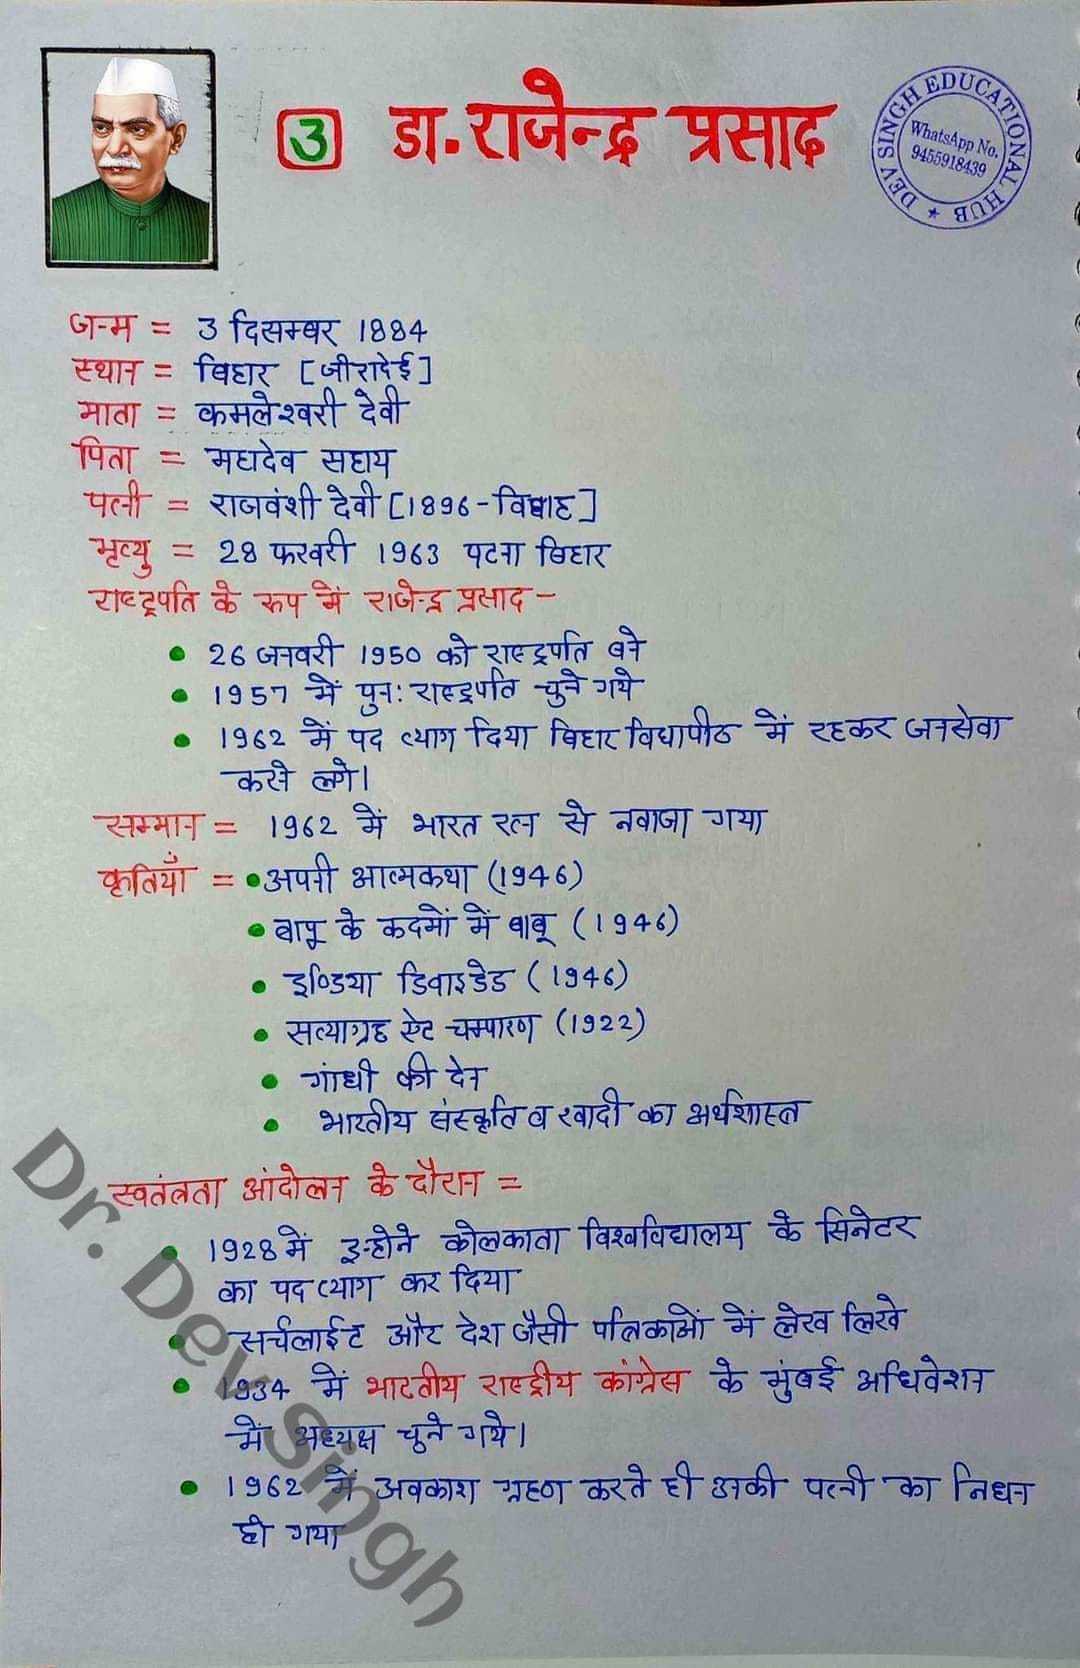 3 डा. राजेन्द्र प्रसाद
DEV SINGH EDUCATIONAL HUB
WhatsApp No.
9455918439
जन्म = 3 दिसम्बर 1884
स्थान = बिहार [जीरादेई]
माता = कमलेश्वरी देवी
पिता = महादेव सहाय
पत्नी = राजवंशी देवी [1896-विवाह]
मृत्यु = 28 फरवरी 1963 पटना बिहार
राष्ट्रपति के रूप में राजेन्द्र प्रसाद-
• 26 जनवरी 1950 को राष्ट्रपति बने
• 1957 में पुन: राष्ट्रपति चुने गये
• 1962 में पद त्याग दिया बिहार विद्यापीठ में रहकर जनसेवा
करने लगे।
सम्मान = 1962 में भारत रत्न से नवाजा गया
कृतियाँ = • अपनी आत्मकथा (1946)
• बापू के कदमों में बाबू (1946)
• इण्डिया डिवाइडेड (1946)
• सत्याग्रह ऐट चम्पारण (1922)
• गांधी की देन
• भारतीय संस्कृति व खादी का अर्थशास्त्र
स्वतंत्रता आंदोलन के दौरान =
• 1928 में इन्होने कोलकाता विश्वविद्यालय के सिनेटर
का पद त्याग कर दिया
• सर्चलाईट और देश जैसी पत्रिकाओं में लेख लिखे
• 1934 में भारतीय राष्ट्रीय कांग्रेस के मुंबई अधिवेशन
में अध्यक्ष चुने गये।
• 1962 में अवकाश ग्रहण करते ही उनकी पत्नी का निधन
हो गया
Dr. Dev Singh